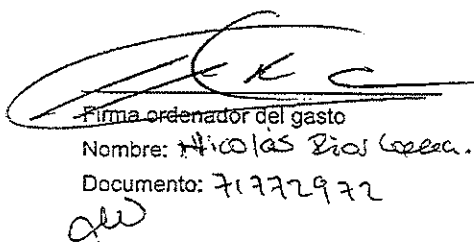 Firma ordenador del gasto
Nombre: Nicolás Rios Correa.
Documento: 71772972